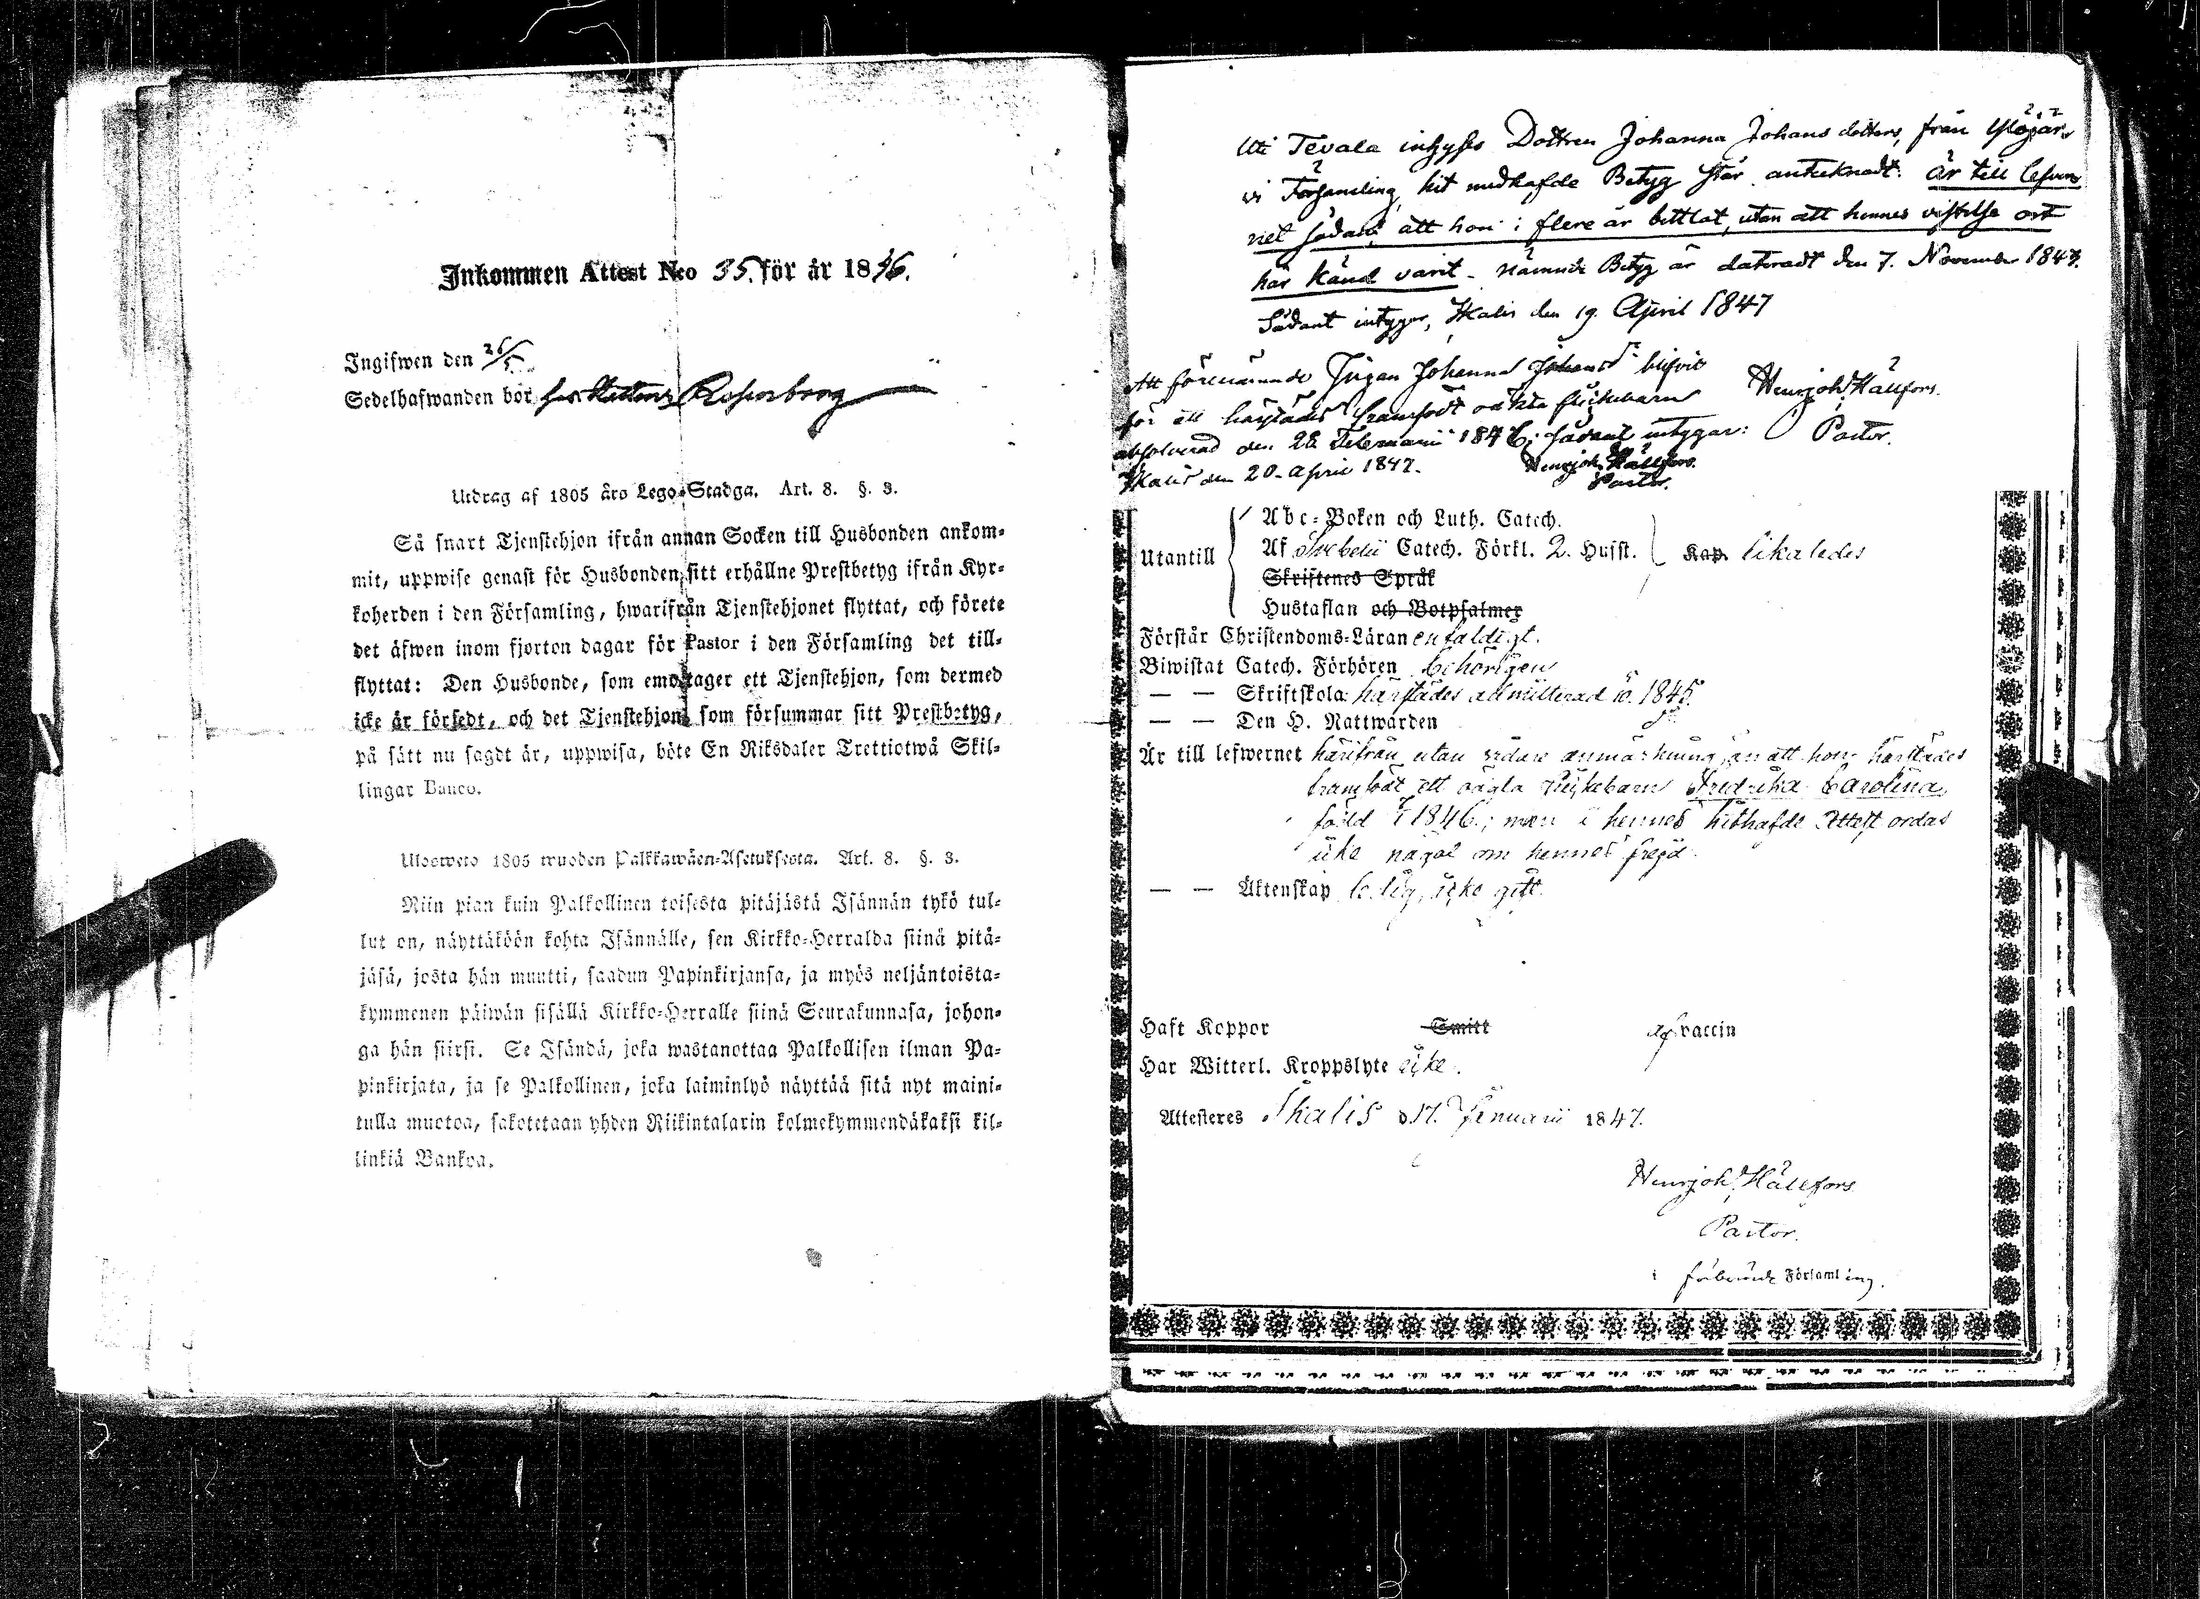 Inkommen Attest N:o 35. för år 1846.
Ingifwen den 26/5
Sedelhafwanden bor hos
Utdrag af 1805 års Lego-Stadga. Art. 8. §. 3.
Så snart Tjenstehjon ifrån annan Socken till Husbonden ankom-
mit, uppwise genast för Husbonden sitt erhållne Prestbetyg ifrån Kyr-
koherden i den Församling, hwarifrån Tjenstehjonet flyttat, och förete
det äfwen inom fjorton dagar för Pastor i den Församling det till-
flyttat: Den Husbonde, som emottager ett Tjenstehjon, som dermed
icke är försedt, och det Tjenstehjon, som försummar sitt Prestbetyg,
på sätt nu sagdt är, uppwisa, böte En Riksdaler Trettiotwå Skil-
lingar Banco.
Ulosweto 1805 wuoden Palkkawäen-Asetuksesta. Art. 8. §. 3.
Niin pian kuin Palkollinen toisesta pitäjästä Isännän tykö tul-
lut on, näyttäköön kohta Isännälle, sen Kirkko-Herralda siinä pitä-
jäsä, josta hän muutti, saadun Papinkirjansa, ja myös neljäntoista-
kymmenen päiwän sisällä Kirkko-Herralle siinä Seurakunnasa, johon-
ga hän siirsi. Se Isändä, joka wastanottaa Palkollisen ilman Pa-
pinkirjata, ja se Palkollinen, joka laiminlyö näyttää sitä nyt maini-
tulla muotoa, sakotetaan yhden Riikintalarin kolmekymmendäkaksi kil-
linkiä Bankoa.
Uti Tevala inhyses Dottren Johanna Johans dotters, från Ylöjär-
vi Församling, hit medhafde Betyg står antecknadt: är till lefver-
net sådan, att hon i flere år bettlat, utan att hennes vistelse ort
här känd varit - nämnde Betyg är dateradt den 7. November 1843.
Sådant intygar, Ikalis den 19 April 1847
Henrjoh Hällfors.
Pastor.
Att förenämnde Pigan Johanna Johansdr blifvit
för ett härstädes framfödt oäkta flickebarn
absolverad den 22 Februarii 1846; sådant intygar:
Ikalis den 20 April 1847.
Henrjoh Hällfors.
Pastor.
Utantill
Abc-Boken och Luth. Catech.
Af Svebelii Catech. Förkl. 2. Hufst.
Kap. likaledes
Skriftenes Språk
Hustaflan och Botpsalmer
Förstår Christendoms-Läran enfaldigt.
Biwistat Catech. Förhören behörigen
— — Skriftskola härstädes admitterad år 1845.
— — Den H. Nattwarden do
Är till lefwernet härifrån utan vidare anmärkning, än att hon härstädes
framfödt ett oägta flickebarn Fredrika Carolina,
född 1846.; men i hennes hithafde Attest ordas
icke något om hennes frejd.
— — Äktenskap ledig, icke gift.
Haft Koppor Smitt af vaccin
Har Witterl. Kroppslyte icke.
Attesteras Ikalis d. 17. Januarii 1847.
Henrjoh Hällfors
Pastor.
i förberörde Församling.